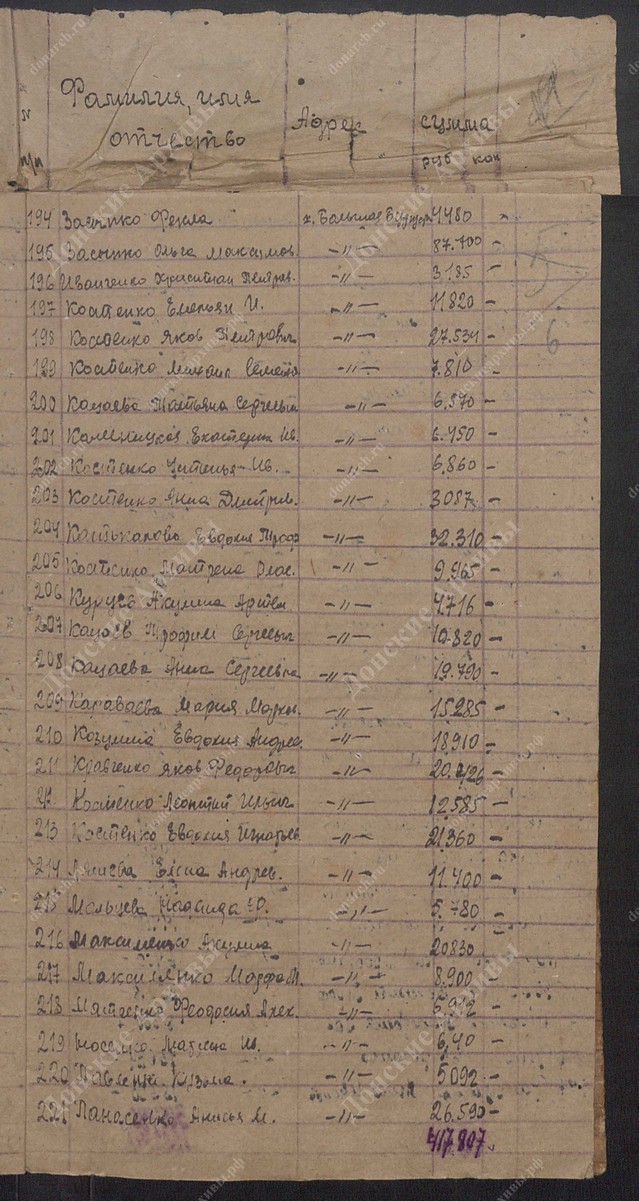 N п/п Фамилия, имя отчество Адрес сумма руб коп
194 Засыпко Фекла х. Большая 4480 -
195 Засыпко Ольга Максимов. -〃- 87.700 -
196 Иванченко Петров. -〃- 3185 -
197 Костенко Емельян И. -〃- 11820 -
198 Костенко Яков Петрович -〃- 27.534 -
199 Костенко Михаил Семен -〃- 7.810 -
200 Кацаева Татьяна Сергеевна -〃- 6.570 -
201 Екатерина Ив. -〃- 6.450 -
202 Костенко Ив. -〃- 6.860 -
203 Костенко Анна Дмитрив. -〃- 3087 -
204 Евдокия Троф -〃- 32.310 -
205 Костенко Матрена Влас. -〃- 9.965 -
206 Акулина Артем -〃- 4.716 -
207 Кацаев Трофим Сергеевич -〃- 10.820 -
208 Кацаева Анна Сергеевна -〃- 19.790 -
209 Караваева Мария Марк. -〃- 15.285 -
210 Евдокия Андреев -〃- 18910 -
211 Кравченко Яков Федорович -〃- 20. -
212 Костенко Леонтий Ильич -〃- 12.585 -
213 Костенко Евдокия Игнатьев -〃- 21.360 -
214 Елена Андрев. -〃- 11.400 -
215 Мальцева Ю. -〃- 5.780 -
216 Максименко Акулина -〃- 20830 -
217 Марфа М. -〃- 8.900 -
218 Феодосия Алек. -〃- 5.912 -
219 Носенко Ив. -〃- 6,40 -
220 Кузьма. -〃- 5092 -
221 Панасенко Анисья М. -〃- 26.590 -
417 807
6